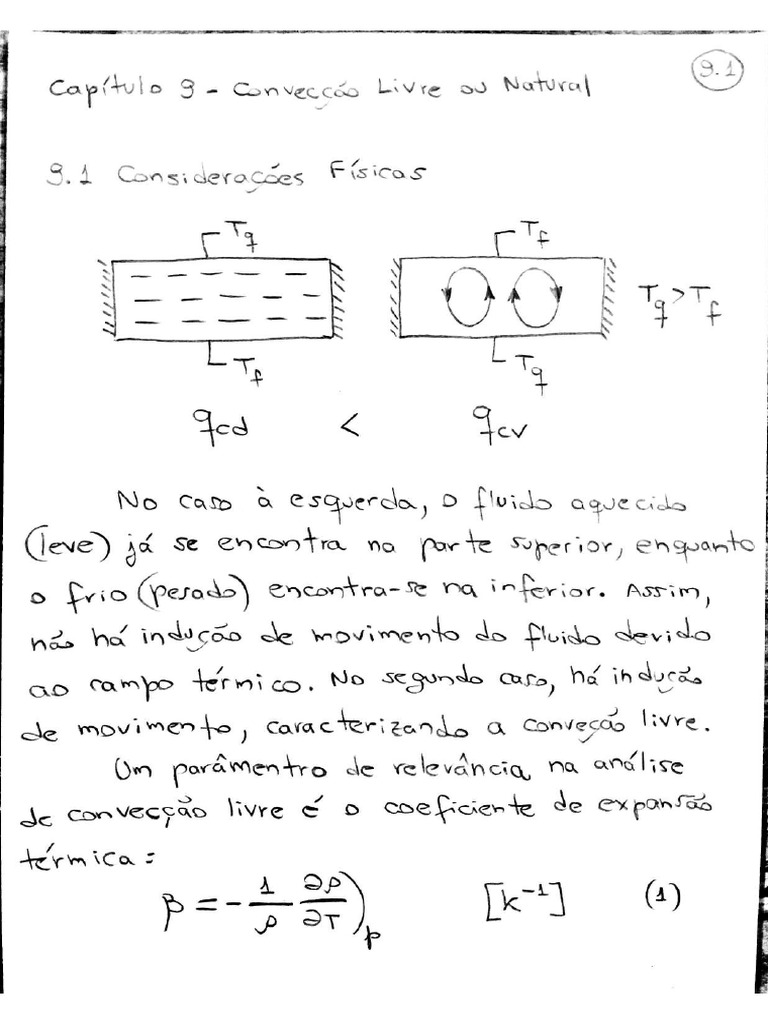 9.1
Capítulo 9 - Convecção Livre ou Natural
9.1 Considerações Físicas
Tq Tf
Tq > Tf
Tf Tq
qcd < qcv
No caso à esquerda, o fluido aquecido
(leve) já se encontra na parte superior, enquanto
o frio (pesado) encontra-se na inferior. Assim,
não há indução de movimento do fluido devido
ao campo térmico. No segundo caso, há indução
de movimento, caracterizando a conveção livre.
Um parâmentro de relevância na análise
de convecção livre é o coeficiente de expansão
térmica:
β = - 1/ρ ∂ρ/∂T)p [k⁻¹] (1)